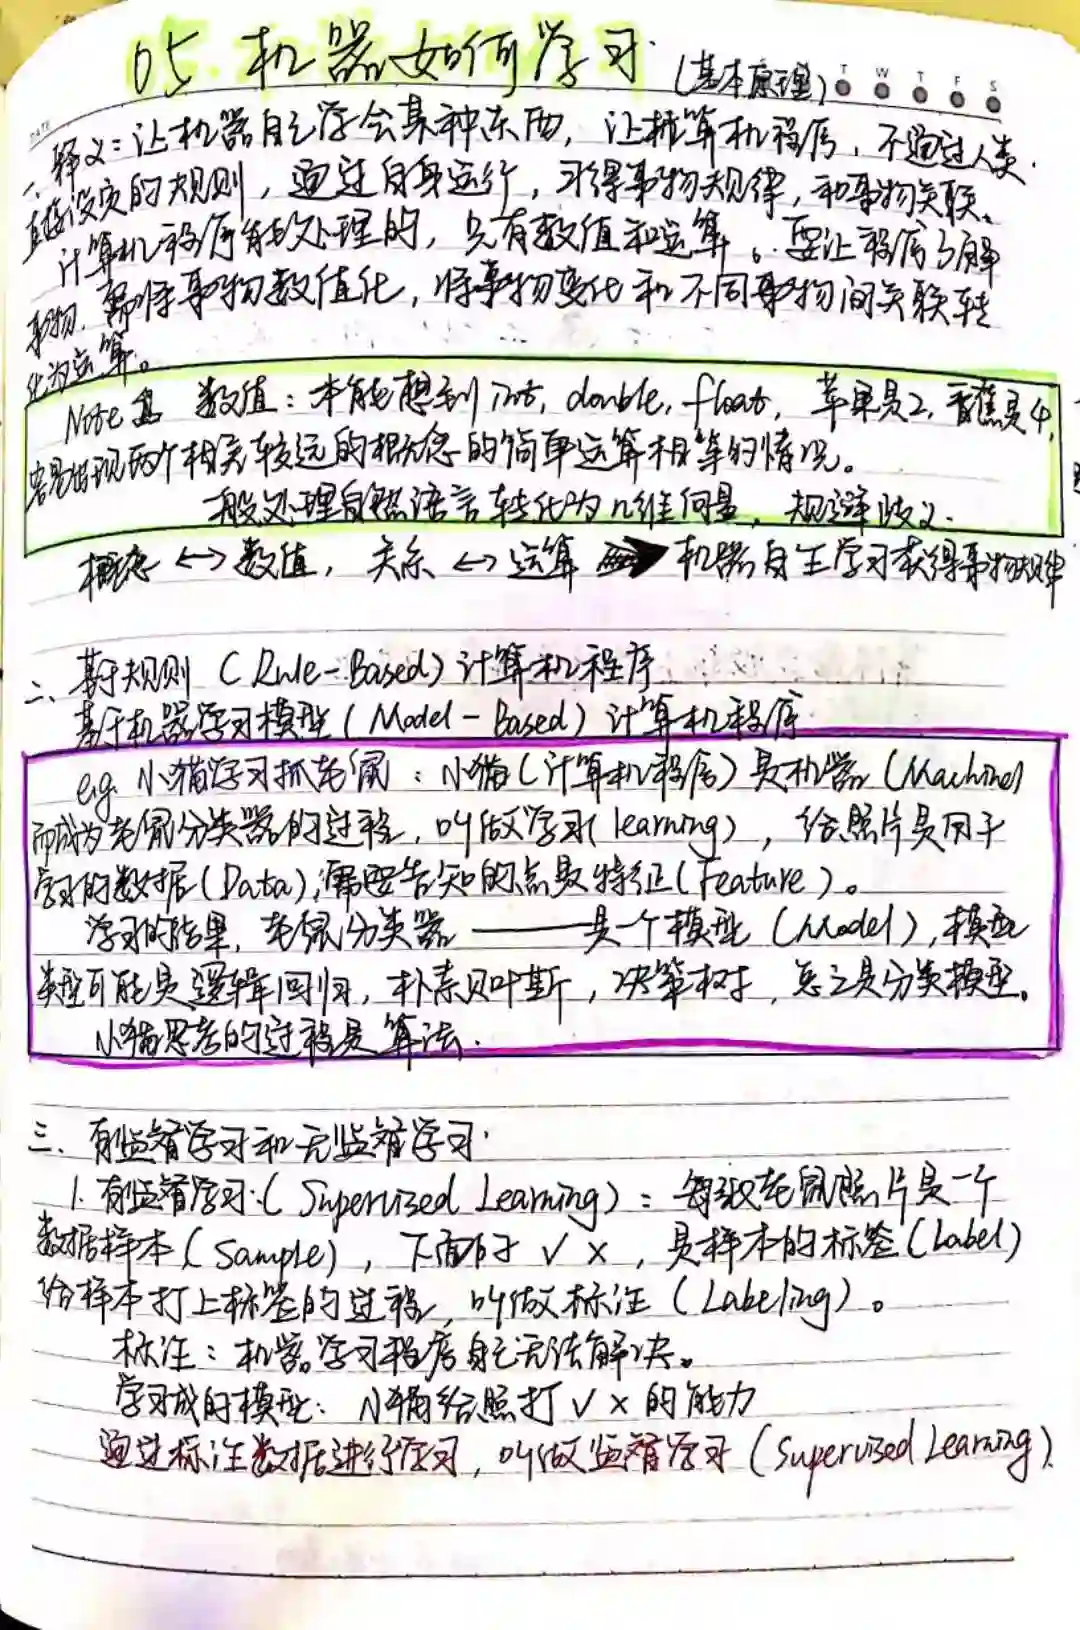 05. 机器如何学习 (基本原理)
T W T F S
DATE
一、释义:让机器自己学会某种东西,让计算机程序,不通过人类
直接设定的规则,通过自身运行,习得事物规律,和事物关联。
计算机程序能处理的,只有数值和运算。要让程序了解
事物,需将事物数值化,将事物变化和不同事物间关联转
化为运算。
Note 数值:本能想到 int, double, float, 苹果是2,香蕉是4,
容易出现两个相差较远的概念的简单运算相等的情况。
一般处理自然语言转化为n维向量,规避歧义.
概念 ↔ 数值,关系 ↔ 运算 ➡ 机器自主学习获得事物规律
二、基于规则 (Rule-Based) 计算机程序
基于机器学习模型 (Model-Based) 计算机程序
e.g. 小猫学习抓老鼠:小猫(计算机程序)是机器 (Machine)
而成为老鼠分类器的过程,叫做学习(learning),给照片是用于
学习的数据(Data),需要告知的点是特征(Feature)。
学习的结果,老鼠分类器——是一个模型 (Model),模型
类型可能是逻辑回归,朴素贝叶斯,决策树,总之是分类模型。
小猫思考的过程是算法.
三、有监督学习和无监督学习.
1. 有监督学习:(Supervised Learning):每张老鼠照片是一个
数据样本(Sample),下面的 √ ×,是样本的标签(Label)
给样本打上标签的过程,叫做标注 (Labeling)。
标注:机器学习程序自己无法解决。
学习成的模型:小猫给照打 √ × 的能力
通过标注数据进行学习,叫做监督学习 (Supervised Learning).